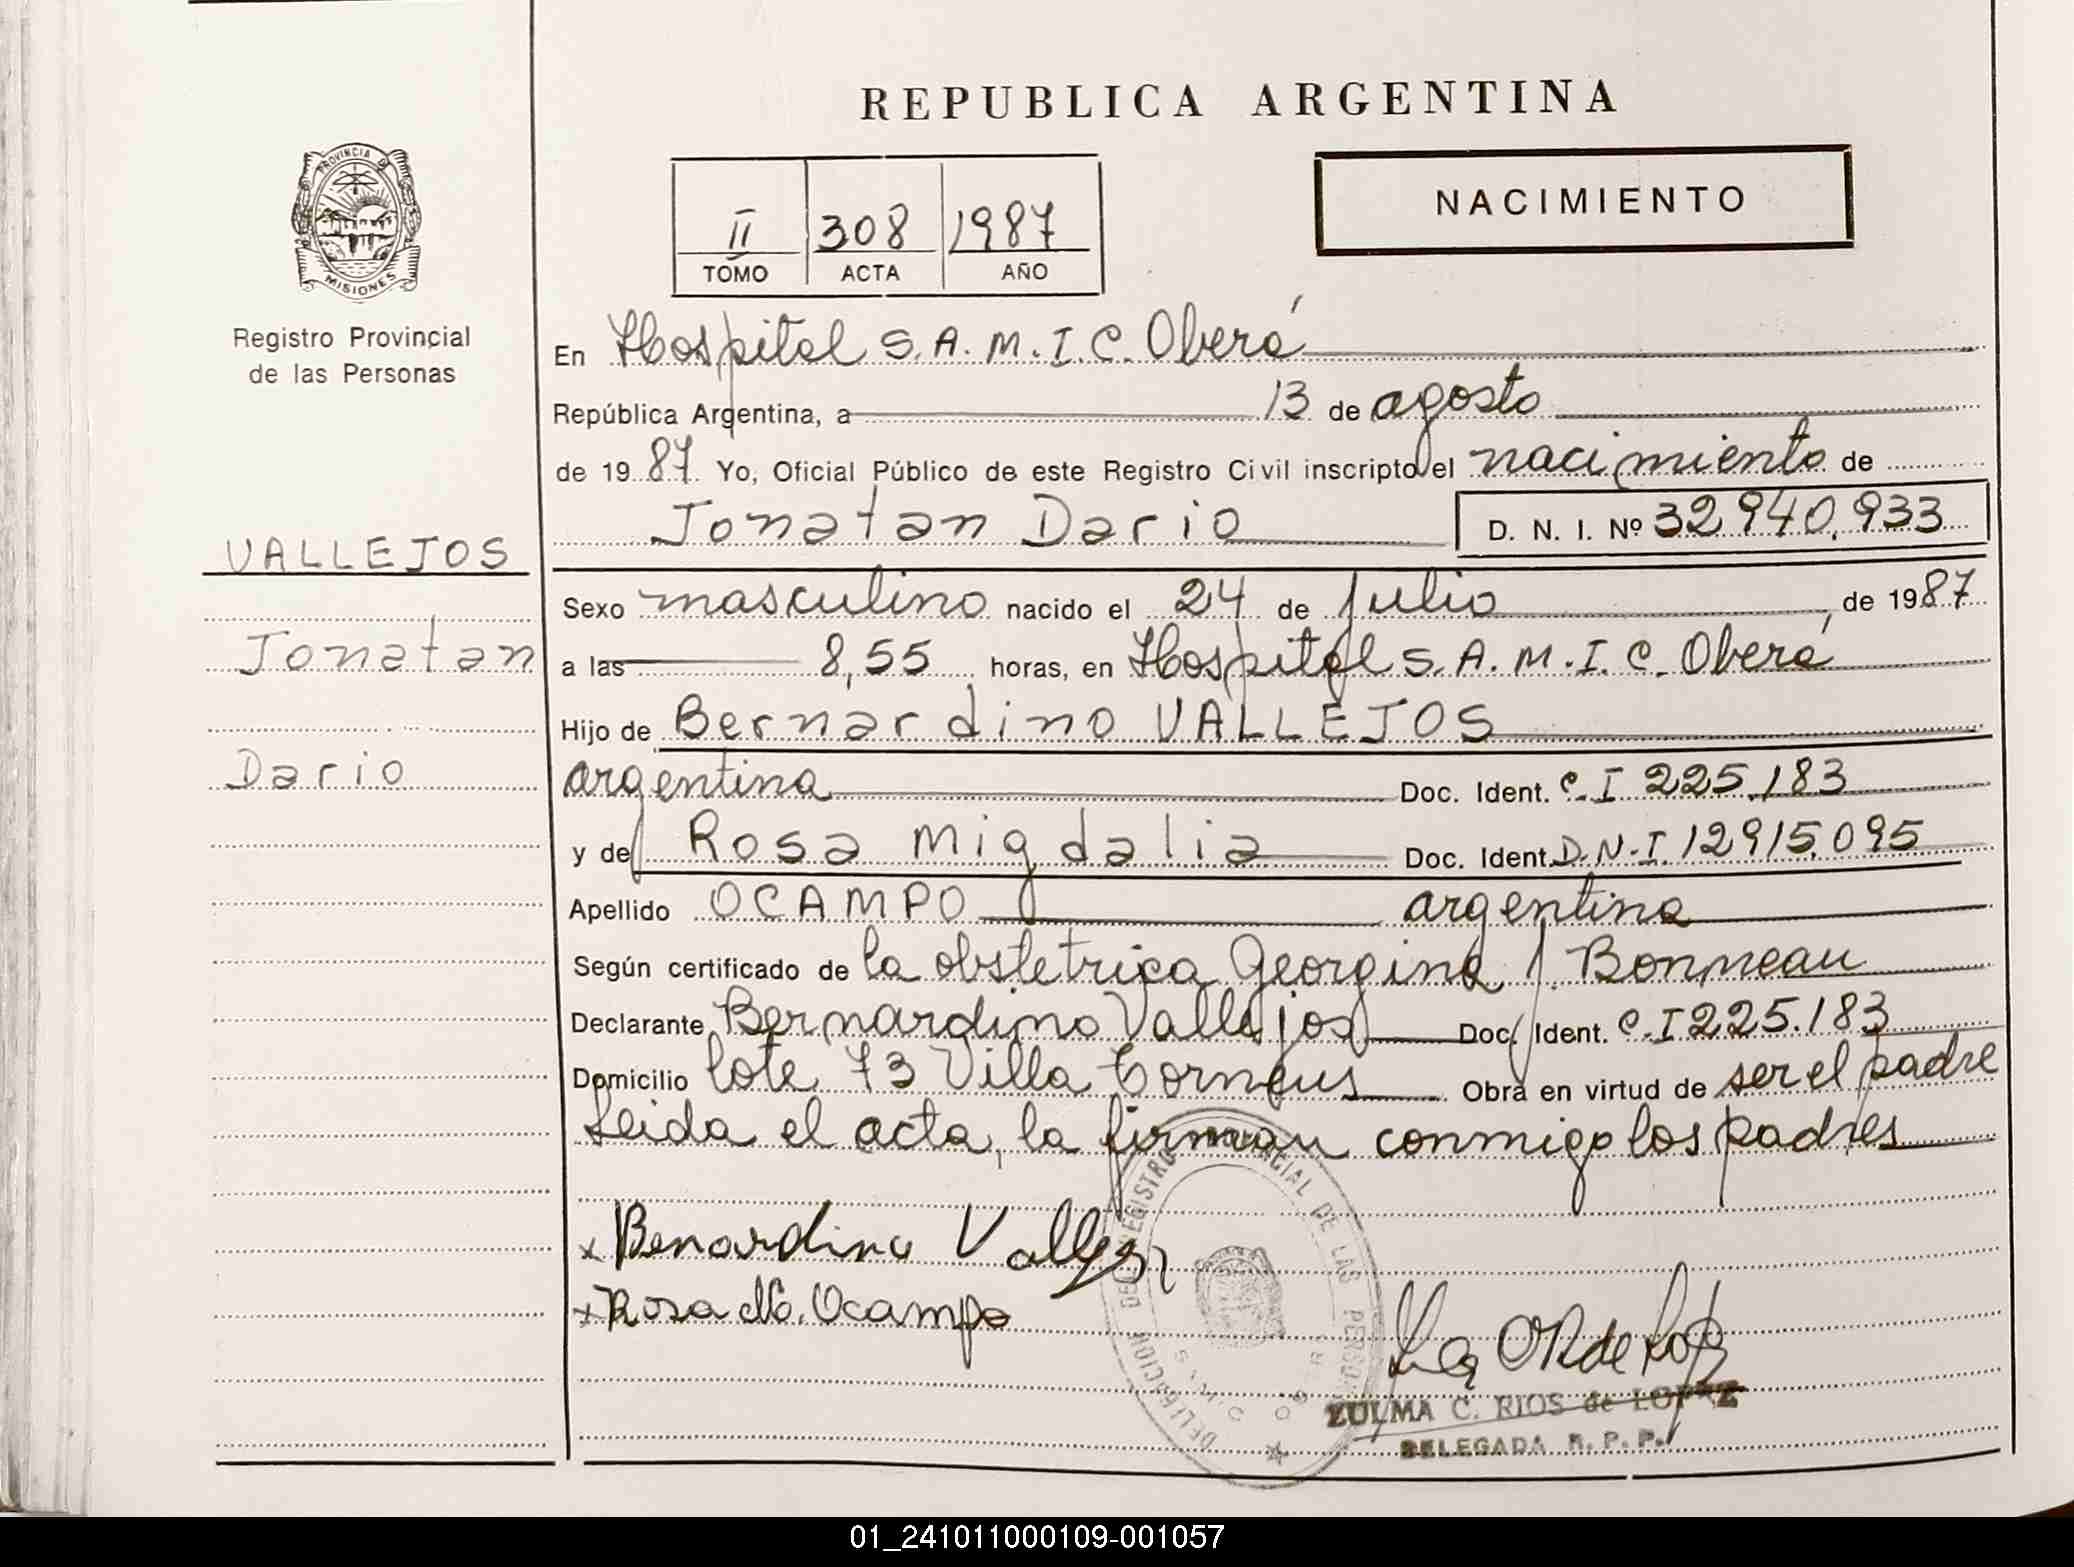 REPUBLICA ARGENTINA
PROVINCIA DE
MISIONES
Registro Provincial
de las Personas
II 308 1987
TOMO ACTA AÑO
NACIMIENTO
En Hospital S.A.M.I.C. Oberá
República Argentina, a 13 de agosto
de 1987 Yo, Oficial Público de este Registro Civil inscripto el nacimiento de
Jonatan Dario D. N. I. Nº 32940.933
VALLEJOS
Jonatan
Dario
Sexo masculino nacido el 24 de julio de 1987
a las 8,55 horas, en Hospital S.A.M.I.C. Oberá
Hijo de Bernardino VALLEJOS
argentina Doc. Ident. C.I 225.183
y de Rosa Migdalia Doc. Ident. D.N.I. 12915.095
Apellido OCAMPO argentina
Según certificado de la obstetrica Georgina J. Bonmeau
Declarante Bernardino Vallejos Doc. Ident. C.I 225.183
Domicilio lote 73 Villa Obra en virtud de ser el padre
Leida el acta, la firman conmigo los padres
x Benardino Vallejos
x Rosa M. Ocampo
DELEGACION DEL REGISTRO PROVINCIAL DE LAS PERSONAS
ZULMA C. RIOS de LOPEZ
DELEGADA R. P. P.
01_241011000109-001057